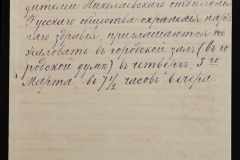 дителей Николаевскаго отделенія
Русскаго общества охраненія нарօд
наго здравія, приглашаются по
жаловать въ городской залъ (въ го
родской думѣ) въ четвергъ 5 го
Марта въ 7½ часовъ вечера